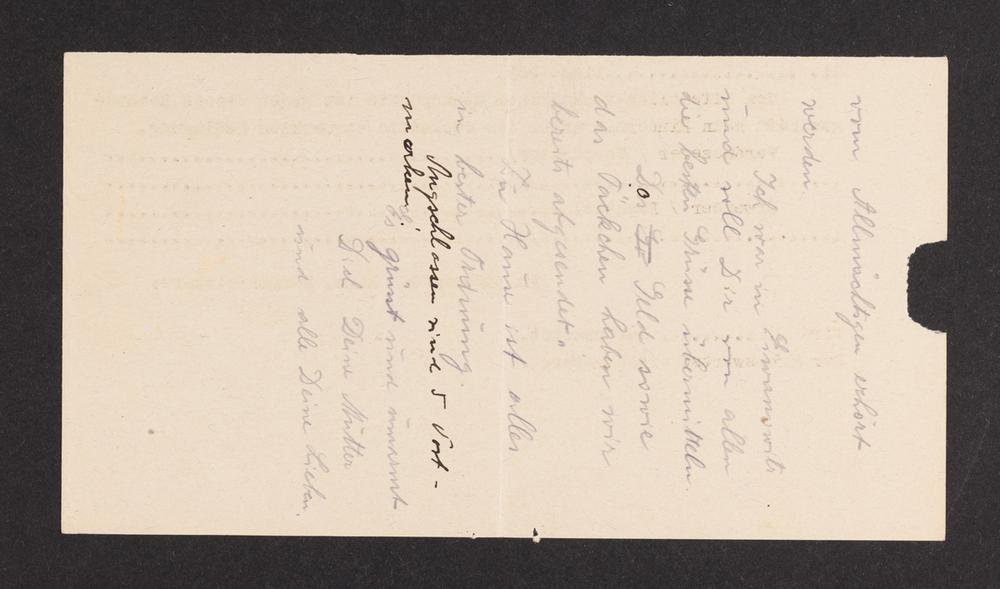 vom Allmächtigen erhört
werden.
Ich war in
und soll Dir von allen
die besten Grüsse übermitteln.
Das Geld sowie
das Päckchen haben wir
bereits abgesendet.
Zu Hause ist alles
in bester Ordnung.
Angschlossen sind 5 Post-
marken!
Es grüsst und umarmt
Dich Deine Mutter
und alle Deine Lieben.